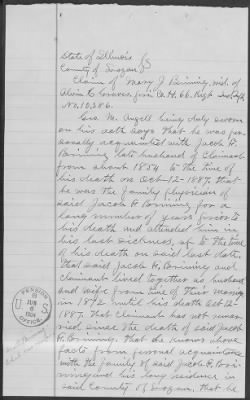 State of Illinois } SS
County of Logan
Claim of Mary J. Brining, wid. of
Co. H, 66, Regt
No. 10,386.
Geo. M. Angell being duly sworn
on his oath says that he was per-
sonally acquainted with Jacob H.
Brining late husband of Claimant
from about 1854 to the time of
his death on Oct-12-1887. that
he was the family physician of
said Jacob H Brining for a
long number of years prior to
his death and attended him in
his last sickness, up to the time
of his death on said last date,
that said Jacob H. Brining and
Claimant lived together as husband
and wife from time of their marriage
in 1872 until his death Oct 12-
1887. That claimant has not remar-
ried since the death of said Jacob
H. Brining. that he knows above
facts from personal acquaintance
with the family of said Jacob H. Brin-
ing and his long residence in
said County of Logan, that he
U.S. PENSION OFFICE
JUN 6